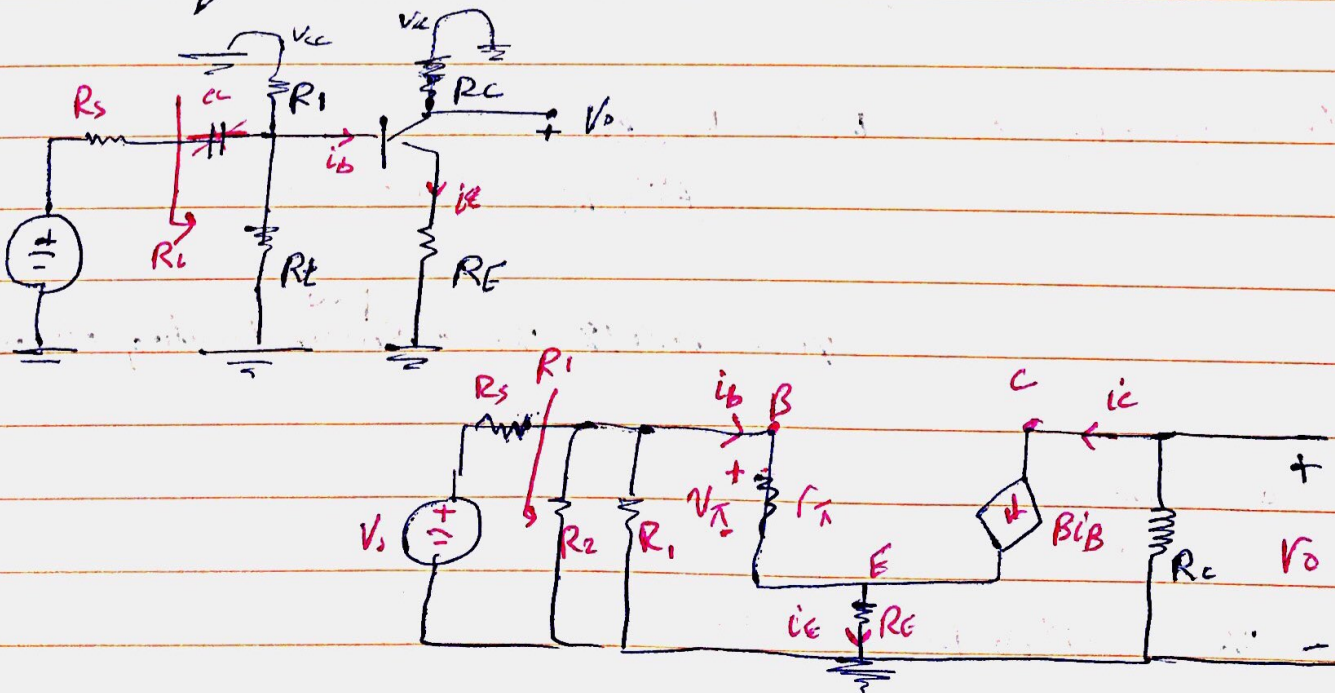 Vcc
Vcc
Rs
R1
Rc
Vo
+
ib
iE
Ri
Rt
RE
+
-
Rs
Ri
ib
B
C
ic
+
Vs
+
-
R2
R1
+
Vπ
-
rπ
BiB
Rc
Vo
E
iE
RE
-